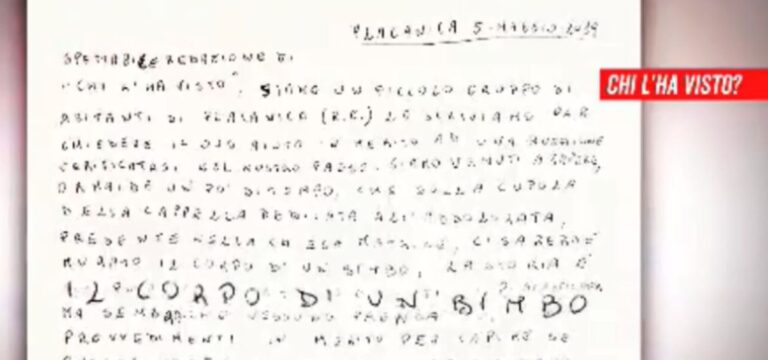 PLACANICA 5-MAGGIO 2019
SPETTABILE REDAZIONE DI
"CHI L'HA VISTO", SIAMO UN PICCOLO GRUPPO DI
CHI L'HA VISTO?
ABITANTI DI PLACANICA (R.C.) LE SCRIVIAMO PER
CHIEDERE IL SUO AIUTO IN MERITO AD UNA QUESTIONE
VERIFICATASI NEL NOSTRO PAESE. SIAMO VENUTI A SAPERE,
DA UN PO' DI TEMPO, CHE SULLA CUPOLA
DELLA CAPPELLA DEDICATA ALL'ADDOLORATA,
PRESENTE NELLA CHIESA MADRE, CI SAREBBE
MURATO IL CORPO DI UN BIMBO, LA STORIA È
IL CORPO DI UN BIMBO
MA SEMBRA NESSUNO PRENDA
PROVVEDIMENTI IN MERITO PER CAPIRE SE